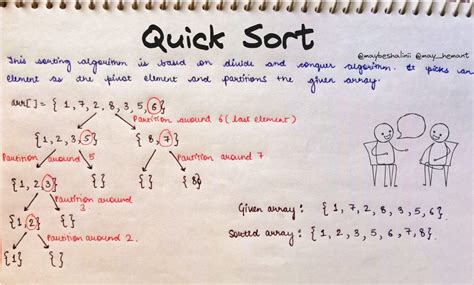 Quick Sort
@maybeshalinii @may_hemant
This sorting algorithm is based on divide and conquer algorithm. It picks an
element as the pivot element and partitions the given array.
arr[] = { 1, 7, 2, 8, 3, 5, 6 }
Partition around 6 (last element)
{1, 2, 3, 5} { 8, 7}
Partition around 5 Partition around 7
{1, 2 3} { } { } { 8}
Partition around
3
{1, 2} { }
Partition around 2.
{1} { }
Given array : { 1, 7, 2, 8, 3, 5, 6}
Sorted array : { 1, 2, 3, 5, 6, 7, 8}